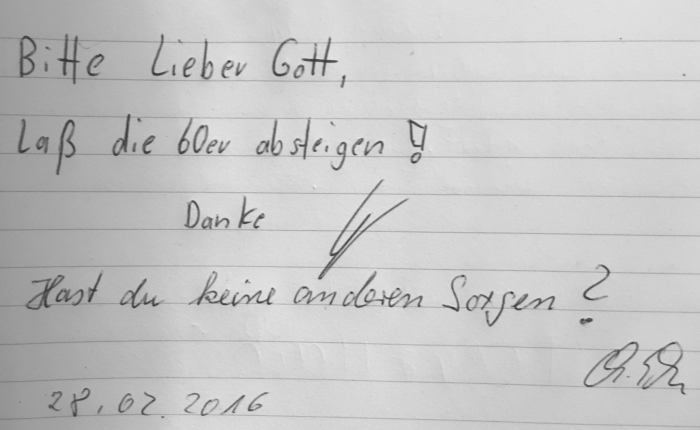 Bitte Lieber Gott,
Laß die 60er absteigen!
Danke
Hast du keine anderen Sorgen?
28.02.2016